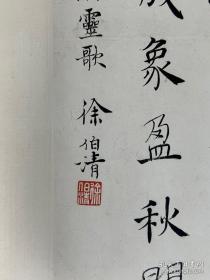 成象盈秋明
靈歌 徐伯清